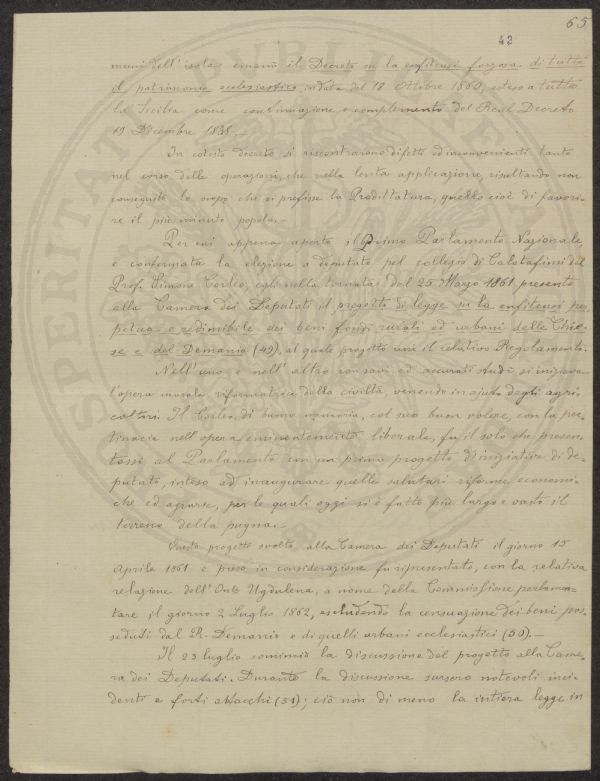 65
42
muni dell'isola emanò il Decreto su la enfiteusi forzosa di tutto
il patrimonio ecclesiastico, in data del 18 Ottobre 1860, esteso a tutta
la Sicilia come continuazione e complemento del Real Decreto
19 Dicembre 1838.—
In cotesto decreto si riscontrarono difetti ed inconvenienti tanto
nel corso delle operazioni, che nella lenta applicazione, risultando non
conseguito lo scopo che si prefisse la Prodittatura, quello cioè di favori-
re il più minuto popolo.—
Per cui appena aperto il Primo Parlamento Nazionale
e confermata la elezione a deputato pel collegio di Calatafimi del
Prof. Simone Corleo, egli nella tornata del 25 Marzo 1861 presentò
alla Camera dei Deputati il progetto di legge su la enfiteusi per-
petua e redimibile dei beni fondi rurali ed urbani delle Chie-
se e del Demanio (49), al quale progetto unì il relativo Regolamento.
Nell'uno e nell'altro con savi ed accurati studi si iniziava
l'opera morale riformatrice della civiltà, venendo in ajuto degli agri-
coltori. Il Corleo di buona memoria, col suo buon volere, con la per-
tinacia nell'opera eminentemente liberale, fu il solo che presen-
tossi al Parlamento con un primo progetto d'iniziativa di de-
putato, inteso ad inaugurare quelle salutari riforme economi-
che ed agrarie, per le quali oggi si è fatto più largo e vasto il
terreno della pugna.—
Questo progetto svolto alla Camera dei Deputati il giorno 15
Aprile 1861 e preso in considerazione fu ripresentato, con la relativa
relazione dell'Onle Ugdulena, a nome della Commissione parlamen-
tare il giorno 2 Luglio 1862, escludendo la censuazione dei beni pos-
seduti dal R. Demanio e di quelli urbani ecclesiastici (50).—
Il 23 luglio cominciò la discussione del progetto alla Came-
ra dei Deputati. Durante la discussione sursero notevoli inci-
denti e forti attacchi (51); ciò non di meno la intiera legge in